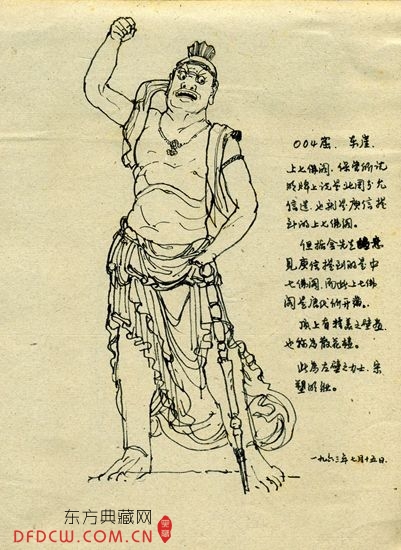 004窟．东崖．
上七佛阁，保管所说
明牌上说是北周李允
信造，也即是庾信提
到的上七佛阁。
但据金先生
见庾信提到的是中
七佛阁，而此上七佛
阁是唐代所开凿。
顶上有精美之壁画
也称为散花楼。
此为左壁之力士．宋
塑明妆。
一九六三年七月十五日．
东方典藏网
DFDCW.COM.CN